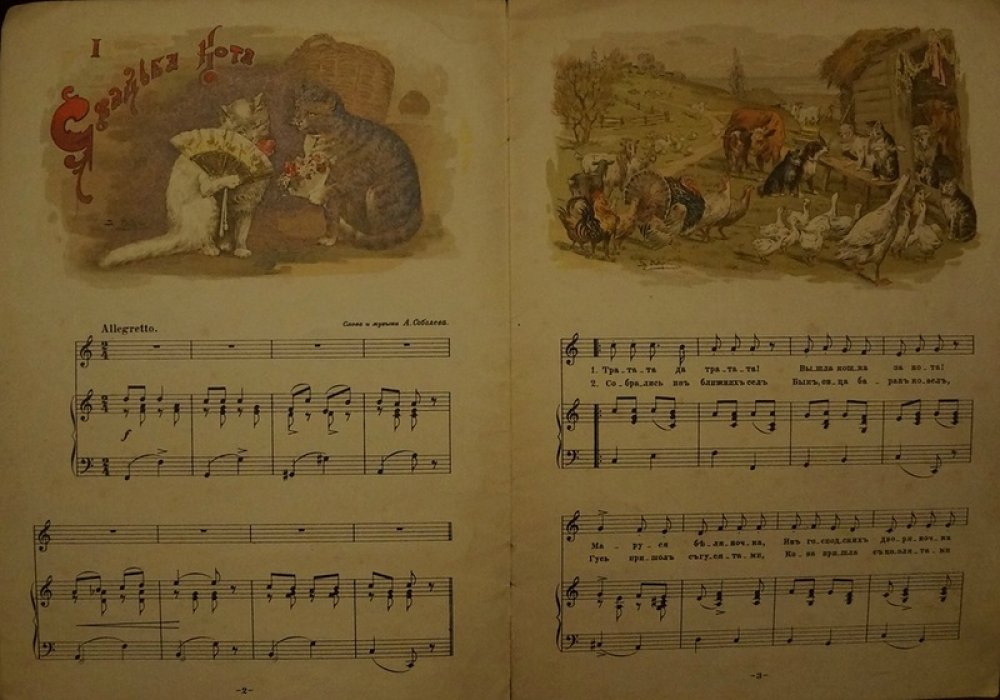 I
Свадьба Кота
Allegretto.
Слова и музыка А. Соболева.
f
-2-
1. Тра-та-та да тра-та-та! Вы-шла кош-ка за ко-та!
2. Со-бра-лись изъ ближнихъ селъ Быкъ, ов-ца ба-ранъ ко-зелъ,
Ма-ру-ся бѣ-ля-ноч-ка, Изъ го-спод-скихъ дво-ря-ноч-ка
Гусь при-шолъ съ гу-ся-та-ми, Ко-за при-шла съ ко-зля-та-ми
-3-